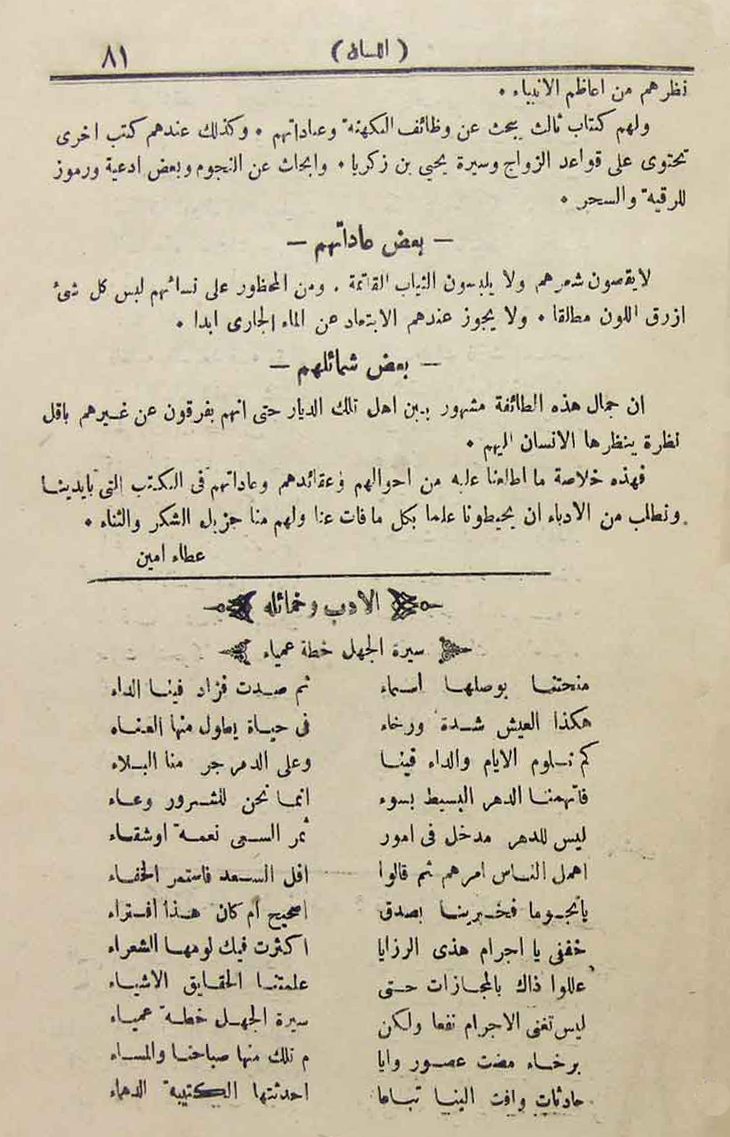 ٨١ ( اللسان )
نظرهم من اعاظم الانبياء •
ولهم كتاب ثالث يبحث عن وظائف الكهنة وعباداتهم • وكذلك عندهم كتب اخرى
تحتوى على قواعد الزواج وسيرة يحيى بن زكريا • وابحاث عن النجوم وبعض ادعية ورموز
للرقية والسحر •
— بعض عاداتهم —
لا يقصون شعرهم ولا يلبسون الثياب القاتمة . ومن المحظور على نسائهم لبس كل شئ
ازرق اللون مطلقا • ولا يجوز عندهم الابتعاد عن الماء الجارى ابدا •
— بعض شمائلهم —
ان جمال هذه الطائفة مشهور بين اهل تلك الديار حتى انهم يفرقون عن غيرهم باقل
نظرة ينظرها الانسان اليهم •
فهذه خلاصة ما اطلعنا عليه من احوالهم وعقائدهم وعاداتهم فى الكتب التى بايدينا
ونطلب من الادباء ان يحيطونا علما بكل ما فات عنا ولهم منا جزيل الشكر والثناء •
عطاء امين
الادب وخمائله
سيرة الجهل خطة عمياء
منحتنا بوصلها اسماء ثم صدت فزاد فينا الداء
هكذا العيش شدة ورخاء فى حياة يطول منها العناء
كم نلوم الايام والداء فينا وعلى الدهر جر منا البلاء
فاتهمنا الدهر البسيط بسوء انما نحن للشرور وعاء
ليس للدهر مدخل فى امور ثمر السعى نعمة اوشقاء
اهمل الناس امرهم ثم قالوا افل السعد فاستمر الخفاء
يانجوما فخبرينا بصدق اصحيح ام كان هذا افتراء
خففى يا اجرام هذى الرزايا اكثرت فيك لومها الشعراء
عللوا ذاك بالمجازات حتى علمتنا الحقايق الاشياء
ليس تغنى الاجرام نفعا ولكن سيرة الجهل خطة عمياء
برخاء مضت عصور وايا م تلك منها صباحنا والمساء
حادثات وافت الينا تباعا احدثتها الكتيبة الدهماء